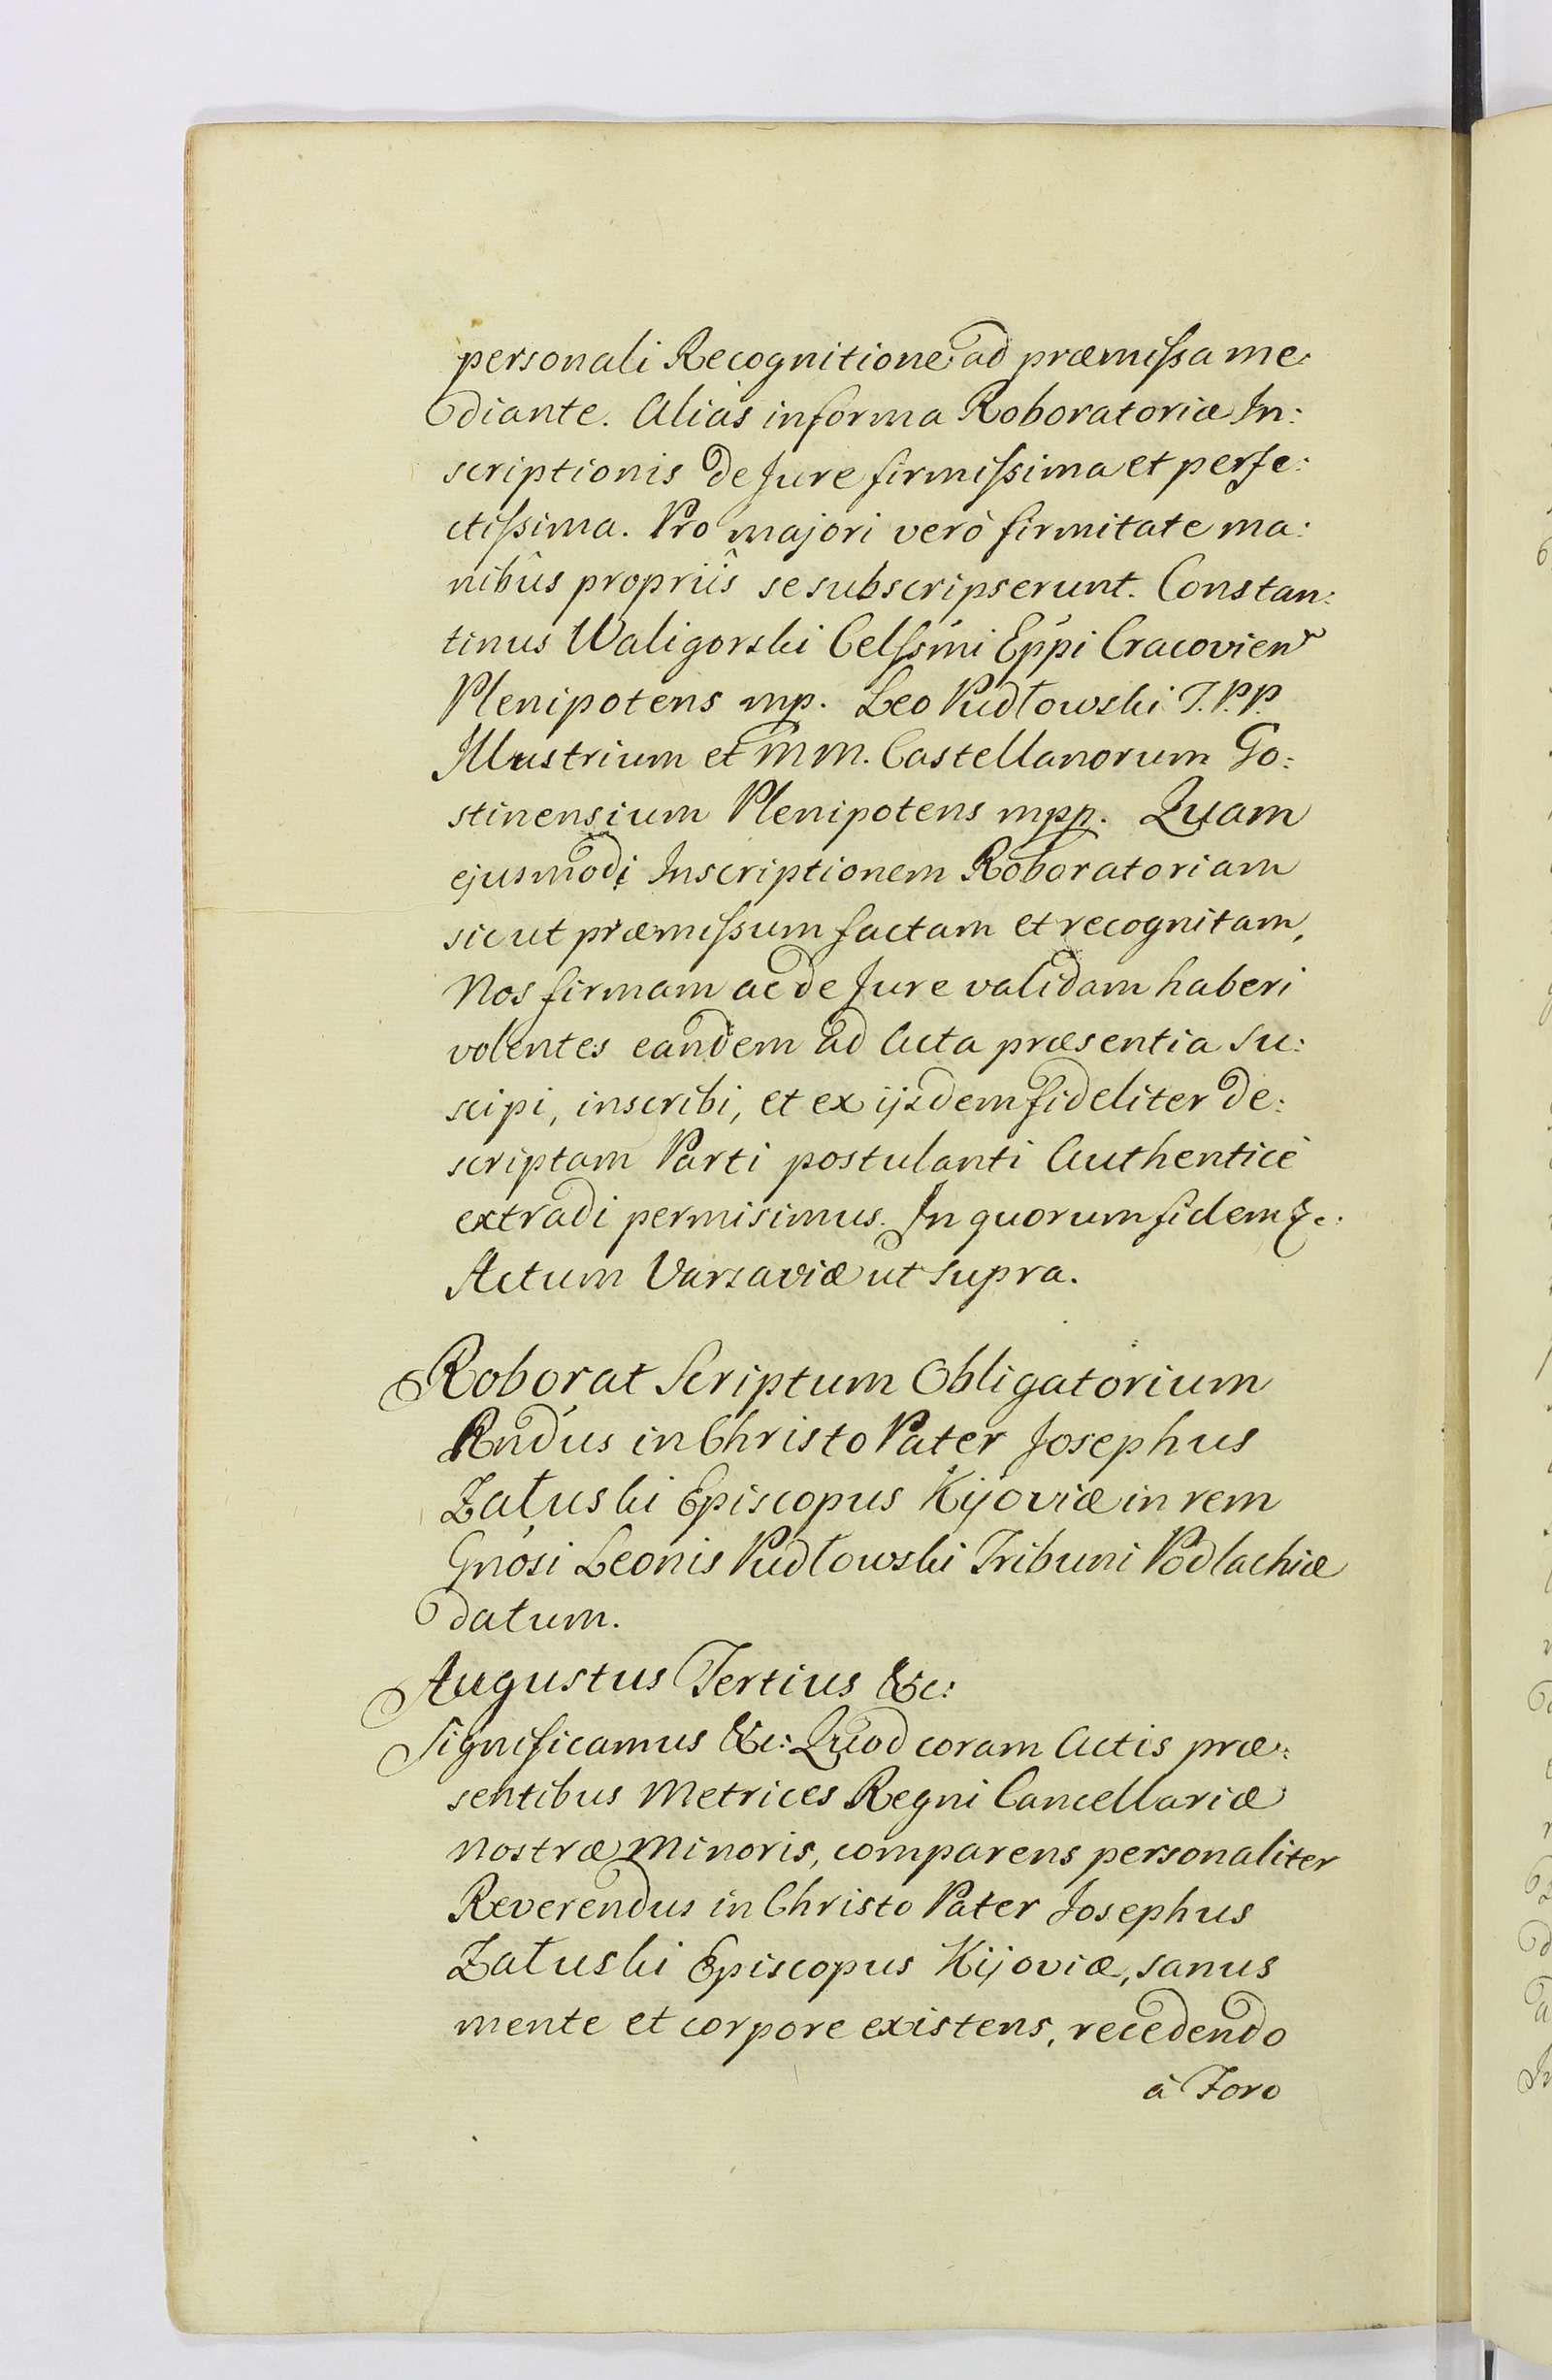 personali Recognitione ad præmissa me:
diante. Aliàs in forma Roboratoriæ In:
scriptionis de Jure firmissima et perfe:
ctissima. Pro majori verò firmitate ma:
nibûs propriîs se subscripserunt. Constan:
tinus Waligorski Celssmi Eppi Cracovien
Plenipotens mp. Leo Pudłowski T.P.P.
Illustrium et M M. Castellanorum Go:
stinensium Plenipotens mpp. Quam
ejusmodi Inscriptionem Roboratoriam
sicut præmissum factam et recognitam,
Nos firmam ac de Jure validam haberi
volentes eandem ad Acta præsentia su:
scipi, inscribi, et ex ijsdem fideliter de:
scriptam Parti postulanti Authenticè
extradi permisimus. In quorum fidem &c.
Actum Varsaviæ ut supra.
Roborat Scriptum Obligatorium
Rndus in Christo Pater Josephus
Załuski Episcopus Kijoviæ in rem
Gnosi Leonis Pudłowski Tribuni Podlachiæ
datum.
Augustus Tertius &c:
Significamus &c: Quod coram Actis præ:
sentibus Metrices Regni Cancellariæ
nostræ Minoris, comparens personaliter
Reverendus in Christo Pater Josephus
Załuski Episcopus Kijoviæ, sanus
mente et corpore existens, recedendo
à Foro